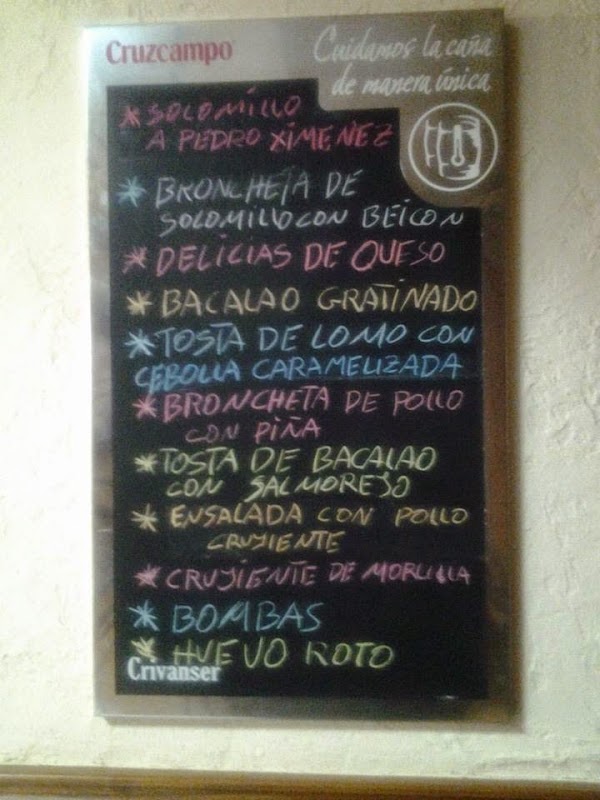 Cruzcampo
Cuidamos la caña
de manera única
* SOLOMILLO
A PEDRO XIMENEZ
* BRONCHETA DE
SOLOMILLO CON BEICON
* DELICIAS DE QUESO
* BACALAO GRATINADO
* TOSTA DE LOMO CON
CEBOLLA CARAMELIZADA
* BRONCHETA DE POLLO
CON PIÑA
* TOSTA DE BACALAO
CON SALMOREJO
* ENSALADA CON POLLO
CRUJIENTE
* CRUJIENTE DE MORCILLA
* BOMBAS
* HUEVO ROTO
Crivanser